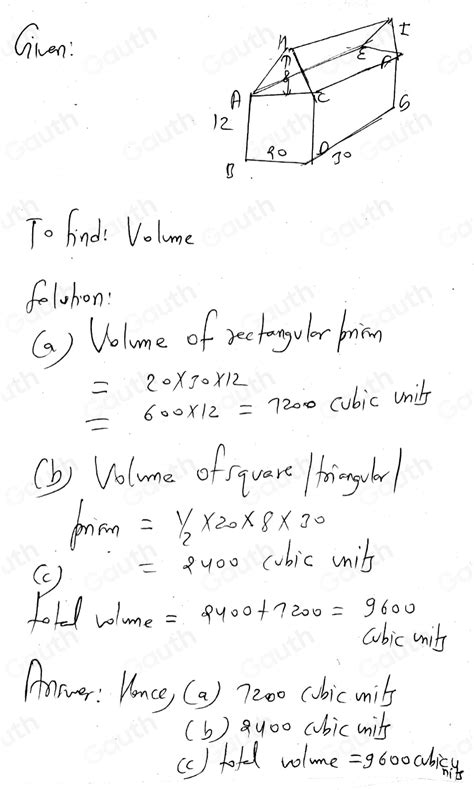 Given:
H
I
8
E
F
A
C
G
12
20
D
30
B
To find: Volume
Solution:
(a) Volume of rectangular prism
= 20X30X12
= 600X12 = 7200 cubic units
(b) Volume of square/triangular/
prism = 1/2 X20X8X30
= 2400 cubic units
(c)
Total volume = 2400+7200 = 9600
cubic units
Answer: Hence, (a) 7200 cubic units
(b) 2400 cubic units
(c) total volume = 9600 cubic units
Gauth